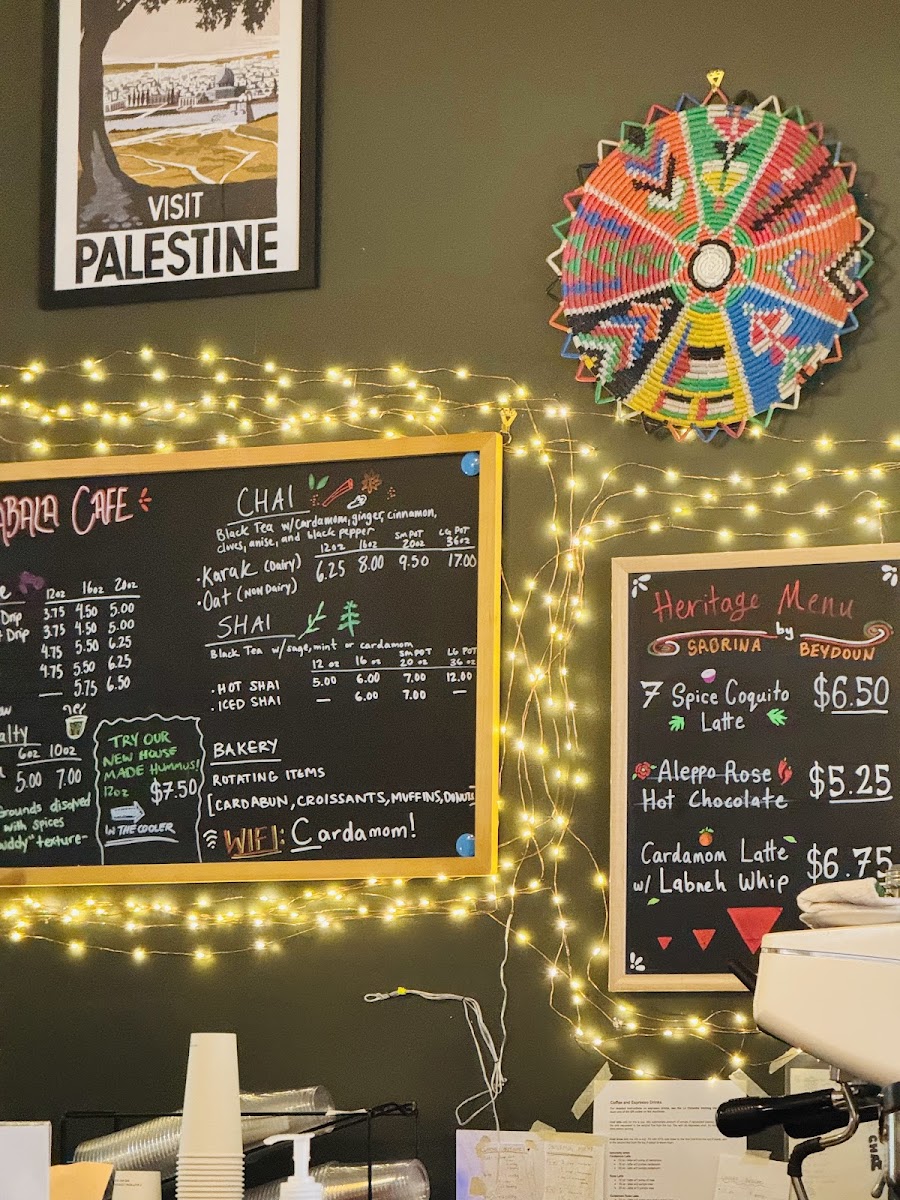 VISIT
PALESTINE
ABALA CAFE
12oz 16oz 20oz
Drip 3.75 4.50 5.00
Drip 3.75 4.50 5.00
4.75 5.50 6.25
4.75 5.50 6.25
— 5.75 6.50
alty
6oz 10oz
5.00 7.00
Grounds disolved
with spices
uddy" texture-
TRY OUR
NEW HOUSE
MADE HUMMUS!
12oz $7.50
IN THE COOLER
CHAI
Black Tea w/Cardamom, ginger, cinnamon,
cloves, anise, and black pepper
12oz 16oz SM POT 20oz LG POT 36oz
· Karak (Dairy) 6.25 8.00 9.50 17.00
· Oat (Non Dairy)
SHAI
Black Tea w/sage, mint or cardamom
12 oz 16 oz SM POT 20 oz LG POT 36 oz
· HOT SHAI 5.00 6.00 7.00 12.00
· ICED SHAI — 6.00 7.00 —
BAKERY
ROTATING ITEMS
[CARDABUN, CROISSANTS, MUFFINS, DONUTS
WIFI: Cardamom!
Heritage Menu
by
SABRINA BEYDOUN
7 Spice Coquito $6.50
Latte
Aleppo Rose $5.25
Hot Chocolate
Cardamom Latte $6.75
w/ Labneh Whip
Coffee and Espresso Drinks